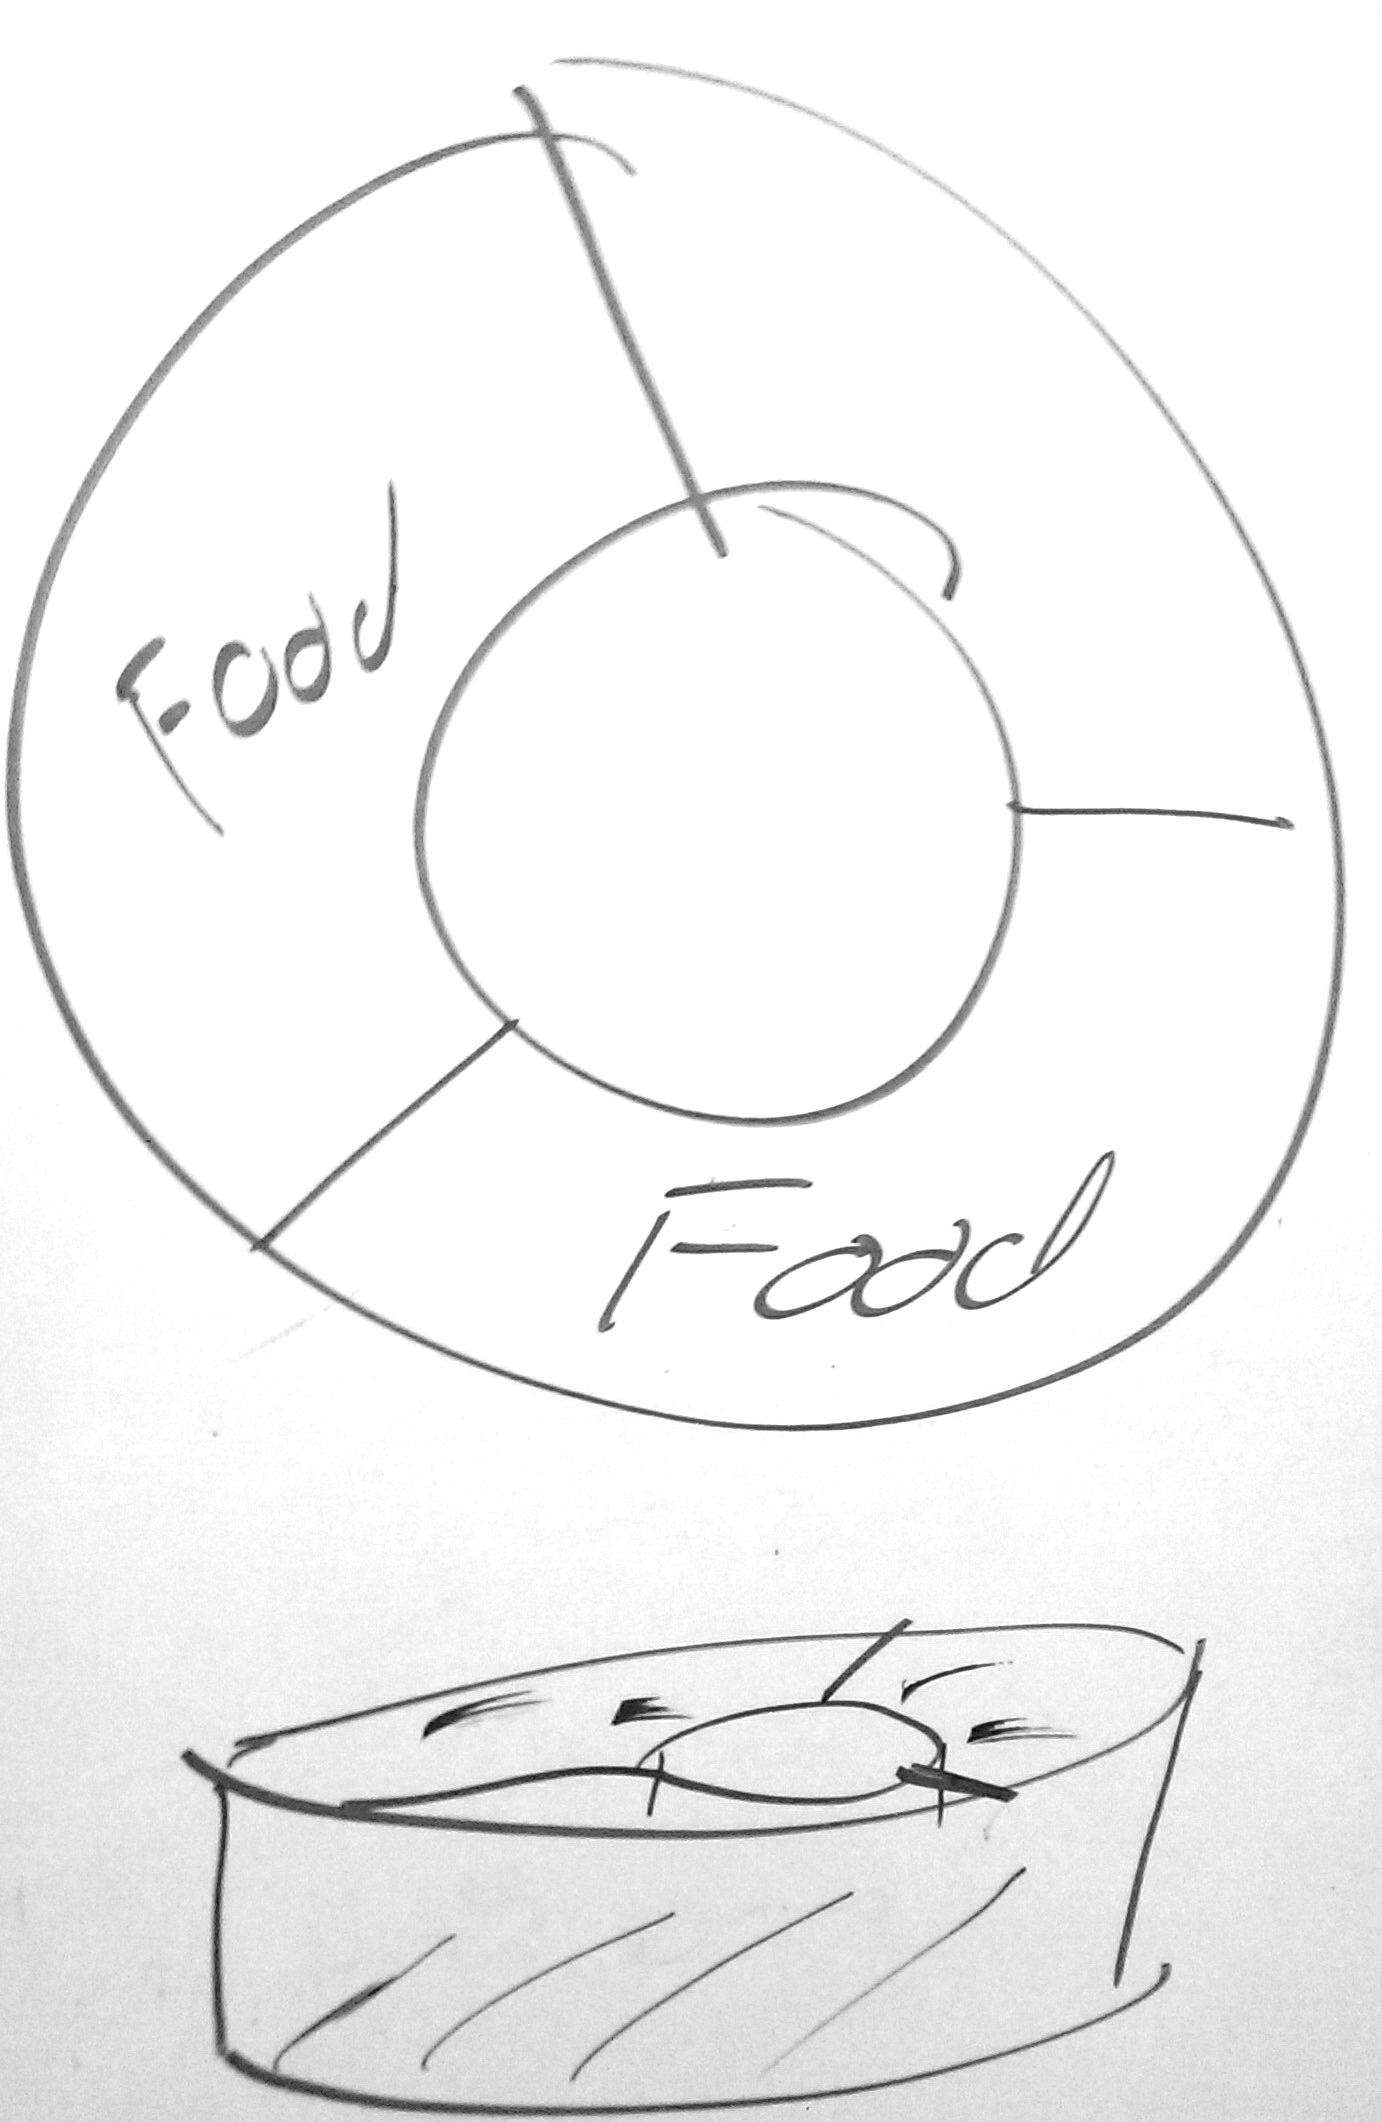 Food
Food